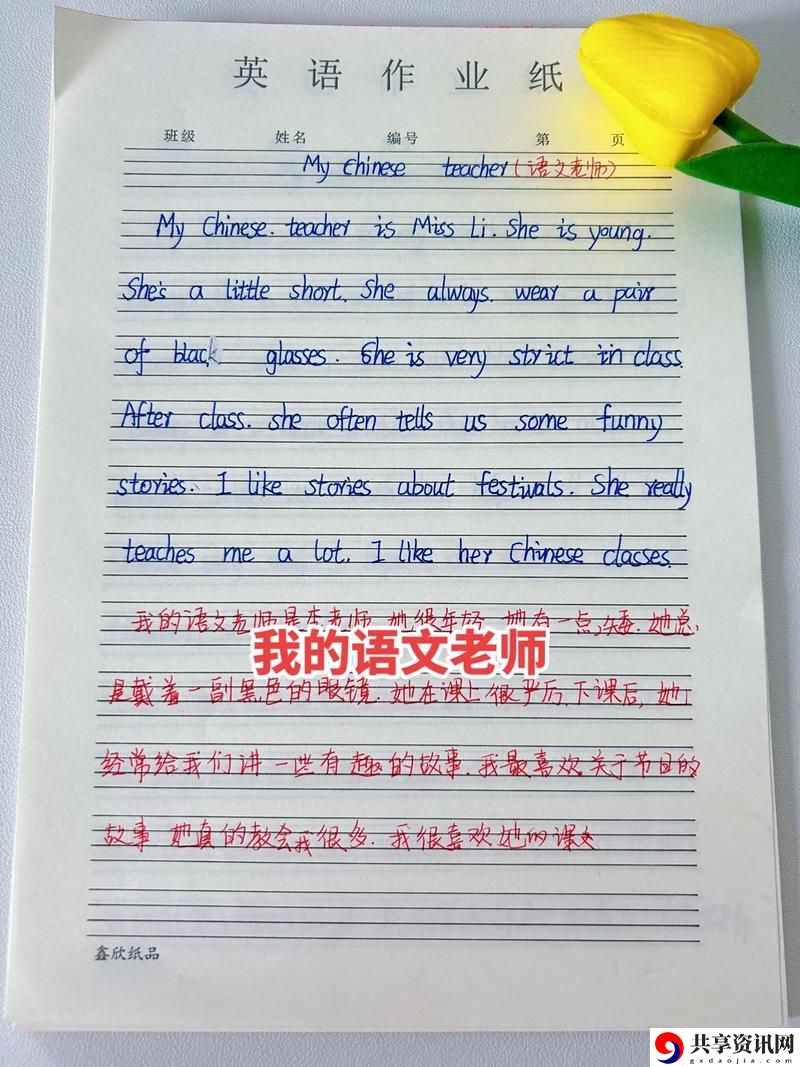 英语作业纸
班级 姓名 编号 第 页
My Chinese teacher(语文老师)
My Chinese. teacher is Miss Li. She is young.
She's a little short. She always. wear a pair
of black glasses. She is very strict in class.
After class. she often tells us some funny
stories. I like stories about festivals. She really
teaches me a lot. I like her Chinese classes.
我的语文老师是李老师.她很年轻.她有一点矮.她总
我的语文老师
是戴着一副黑色的眼镜.她在课上很严厉.下课后,她
经常给我们讲一些有趣的故事.我最喜欢关于节日的
故事 她真的教会我很多.我很喜欢她的课
鑫欣纸品
共享资讯网
gxdaojia.com